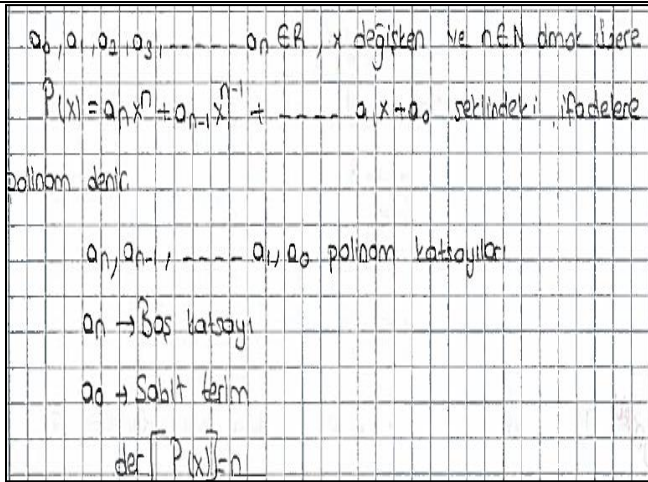 a₀, a₁, a₂, a₃, ------ aₙ ∈ R, x değişken ve n∈N olmak üzere
P(x) = aₙxⁿ + aₙ₋₁xⁿ⁻¹ + ---- a₁x + a₀ şeklindeki ifadelere
polinom denir.
aₙ, aₙ₋₁, ----- a₁, a₀ polinom katsayıları
aₙ → Baş katsayı
a₀ → Sabit terim
der[P(x)] = n